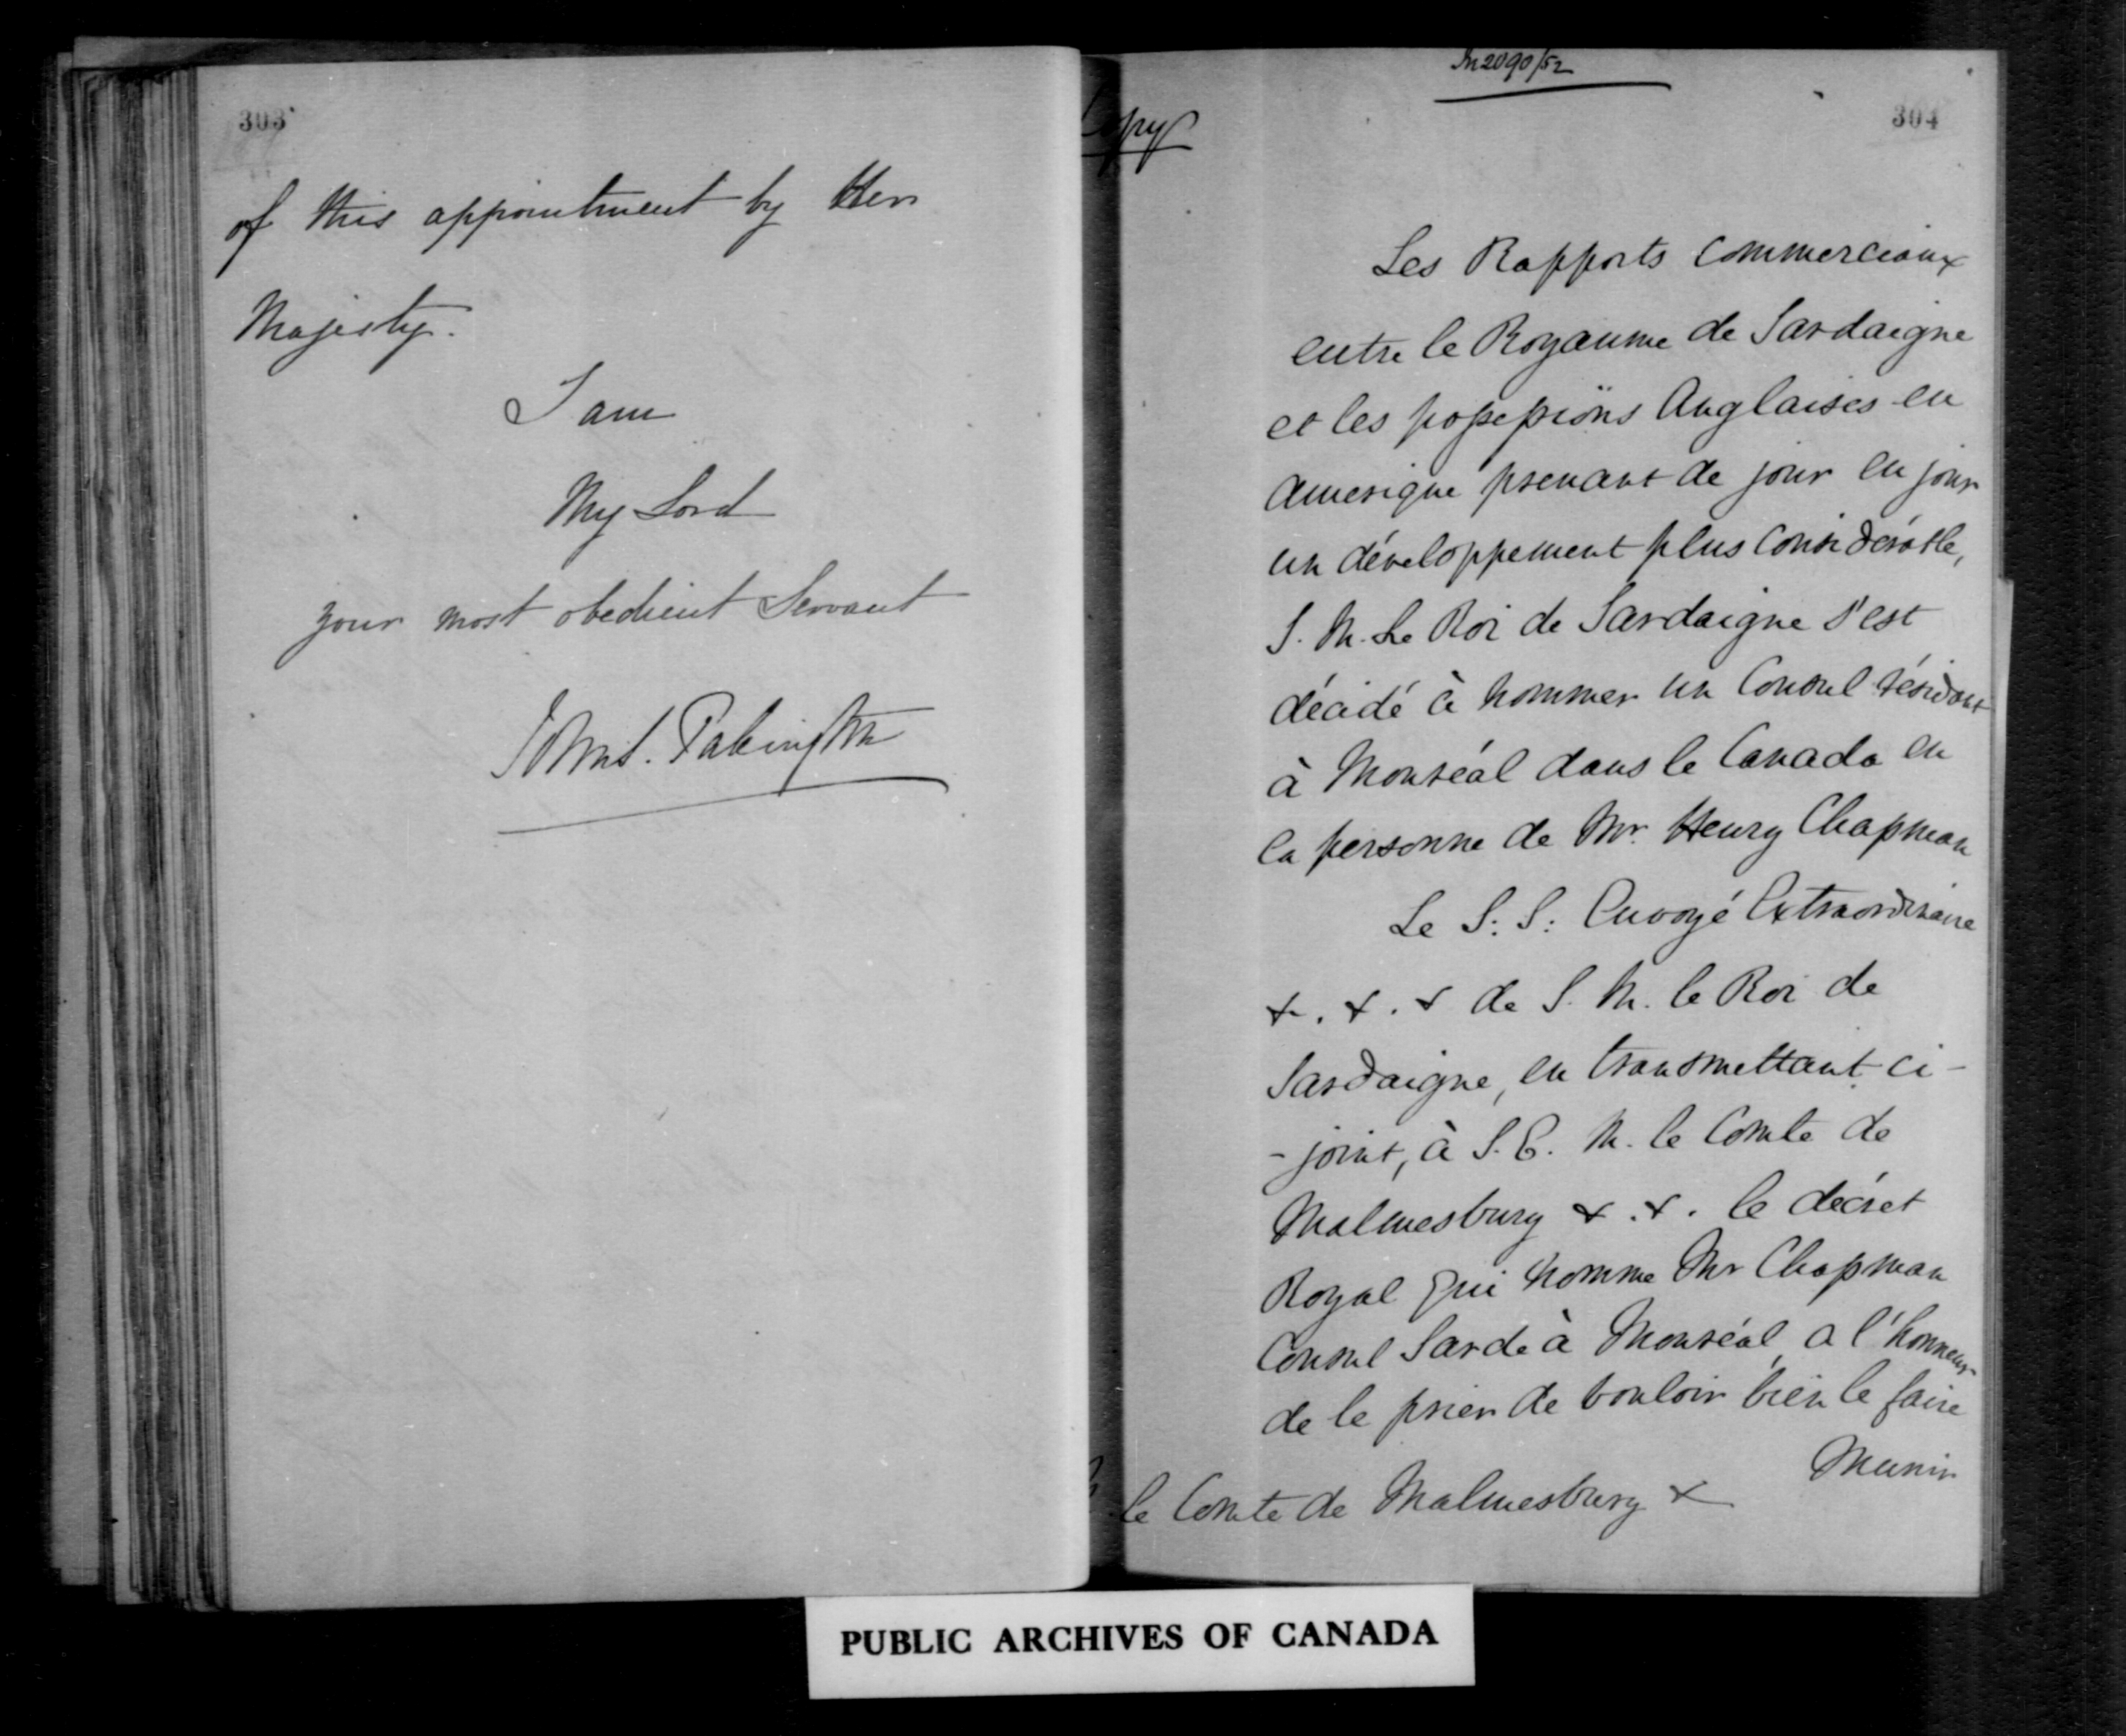 303
of this appointment by Her
Majesty.
I am
My Lord
your most obedient Servant
John S. Pakington
2090/52
Copy
304
Les Rapports commerciaux
entre le Royaume de Sardaigne
et les possessions Anglaises en
Amerique prenant de jour en jour
un développement plus considérable,
S. M. Le Roi de Sardaigne s'est
décidé à nommer un Consul résidant
à Montréal dans le Canada en
la personne de Mr. Henry Chapman
Le S: S: Envoyé Extraordinaire
&. &. & de S. M. le Roi de
Sardaigne, en transmettant ci-
-joint, à S. E. M. le Comte de
Malmesbury &. &. le décret
Royal qui nomme Mr Chapman
Consul Sarde à Montréal, a l'honneur
de le prier de vouloir bien le faire
Munir
le Comte de Malmesbury &
PUBLIC ARCHIVES OF CANADA